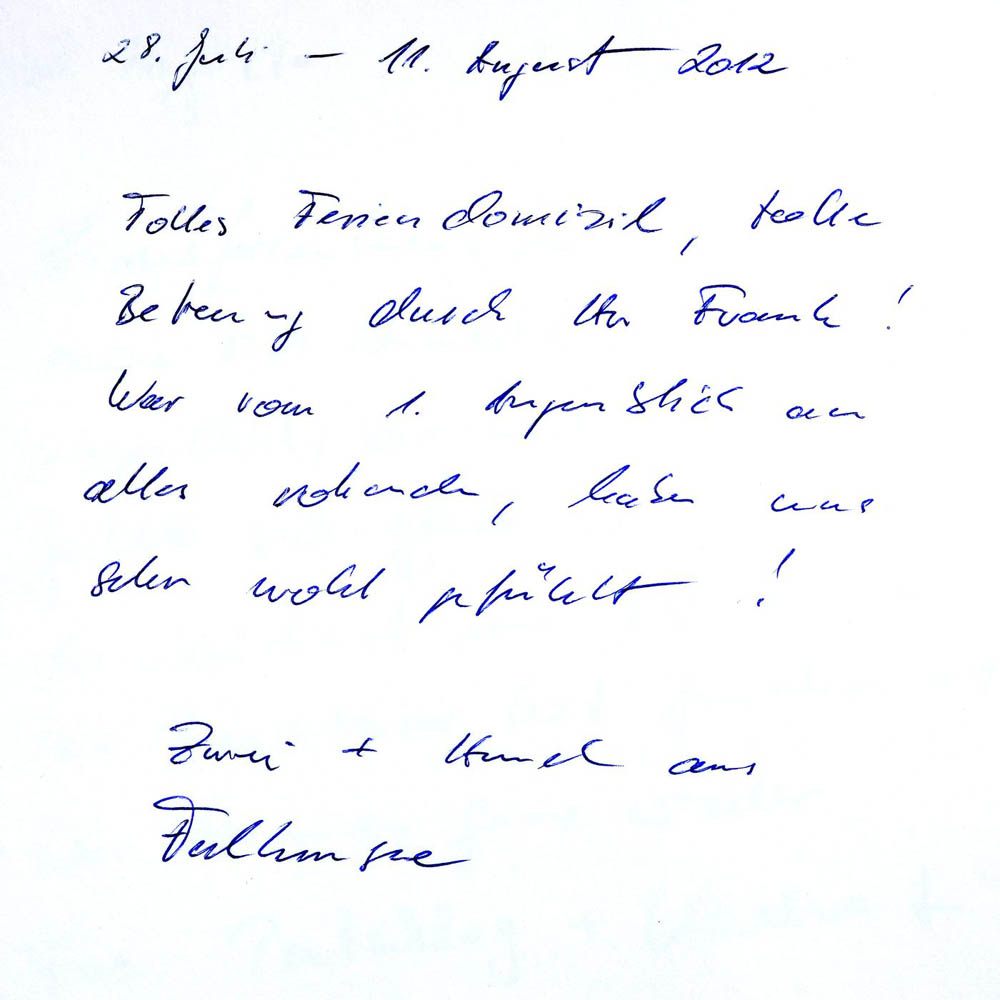 28. Juli – 11. August 2012
Tolles Feriendomizil, tolle
Betreuung durch Hr Frank!
War vom 1. Augenblick an
alles vorhanden, haben uns
sehr wohl gefühlt!
Zwei + Hund aus